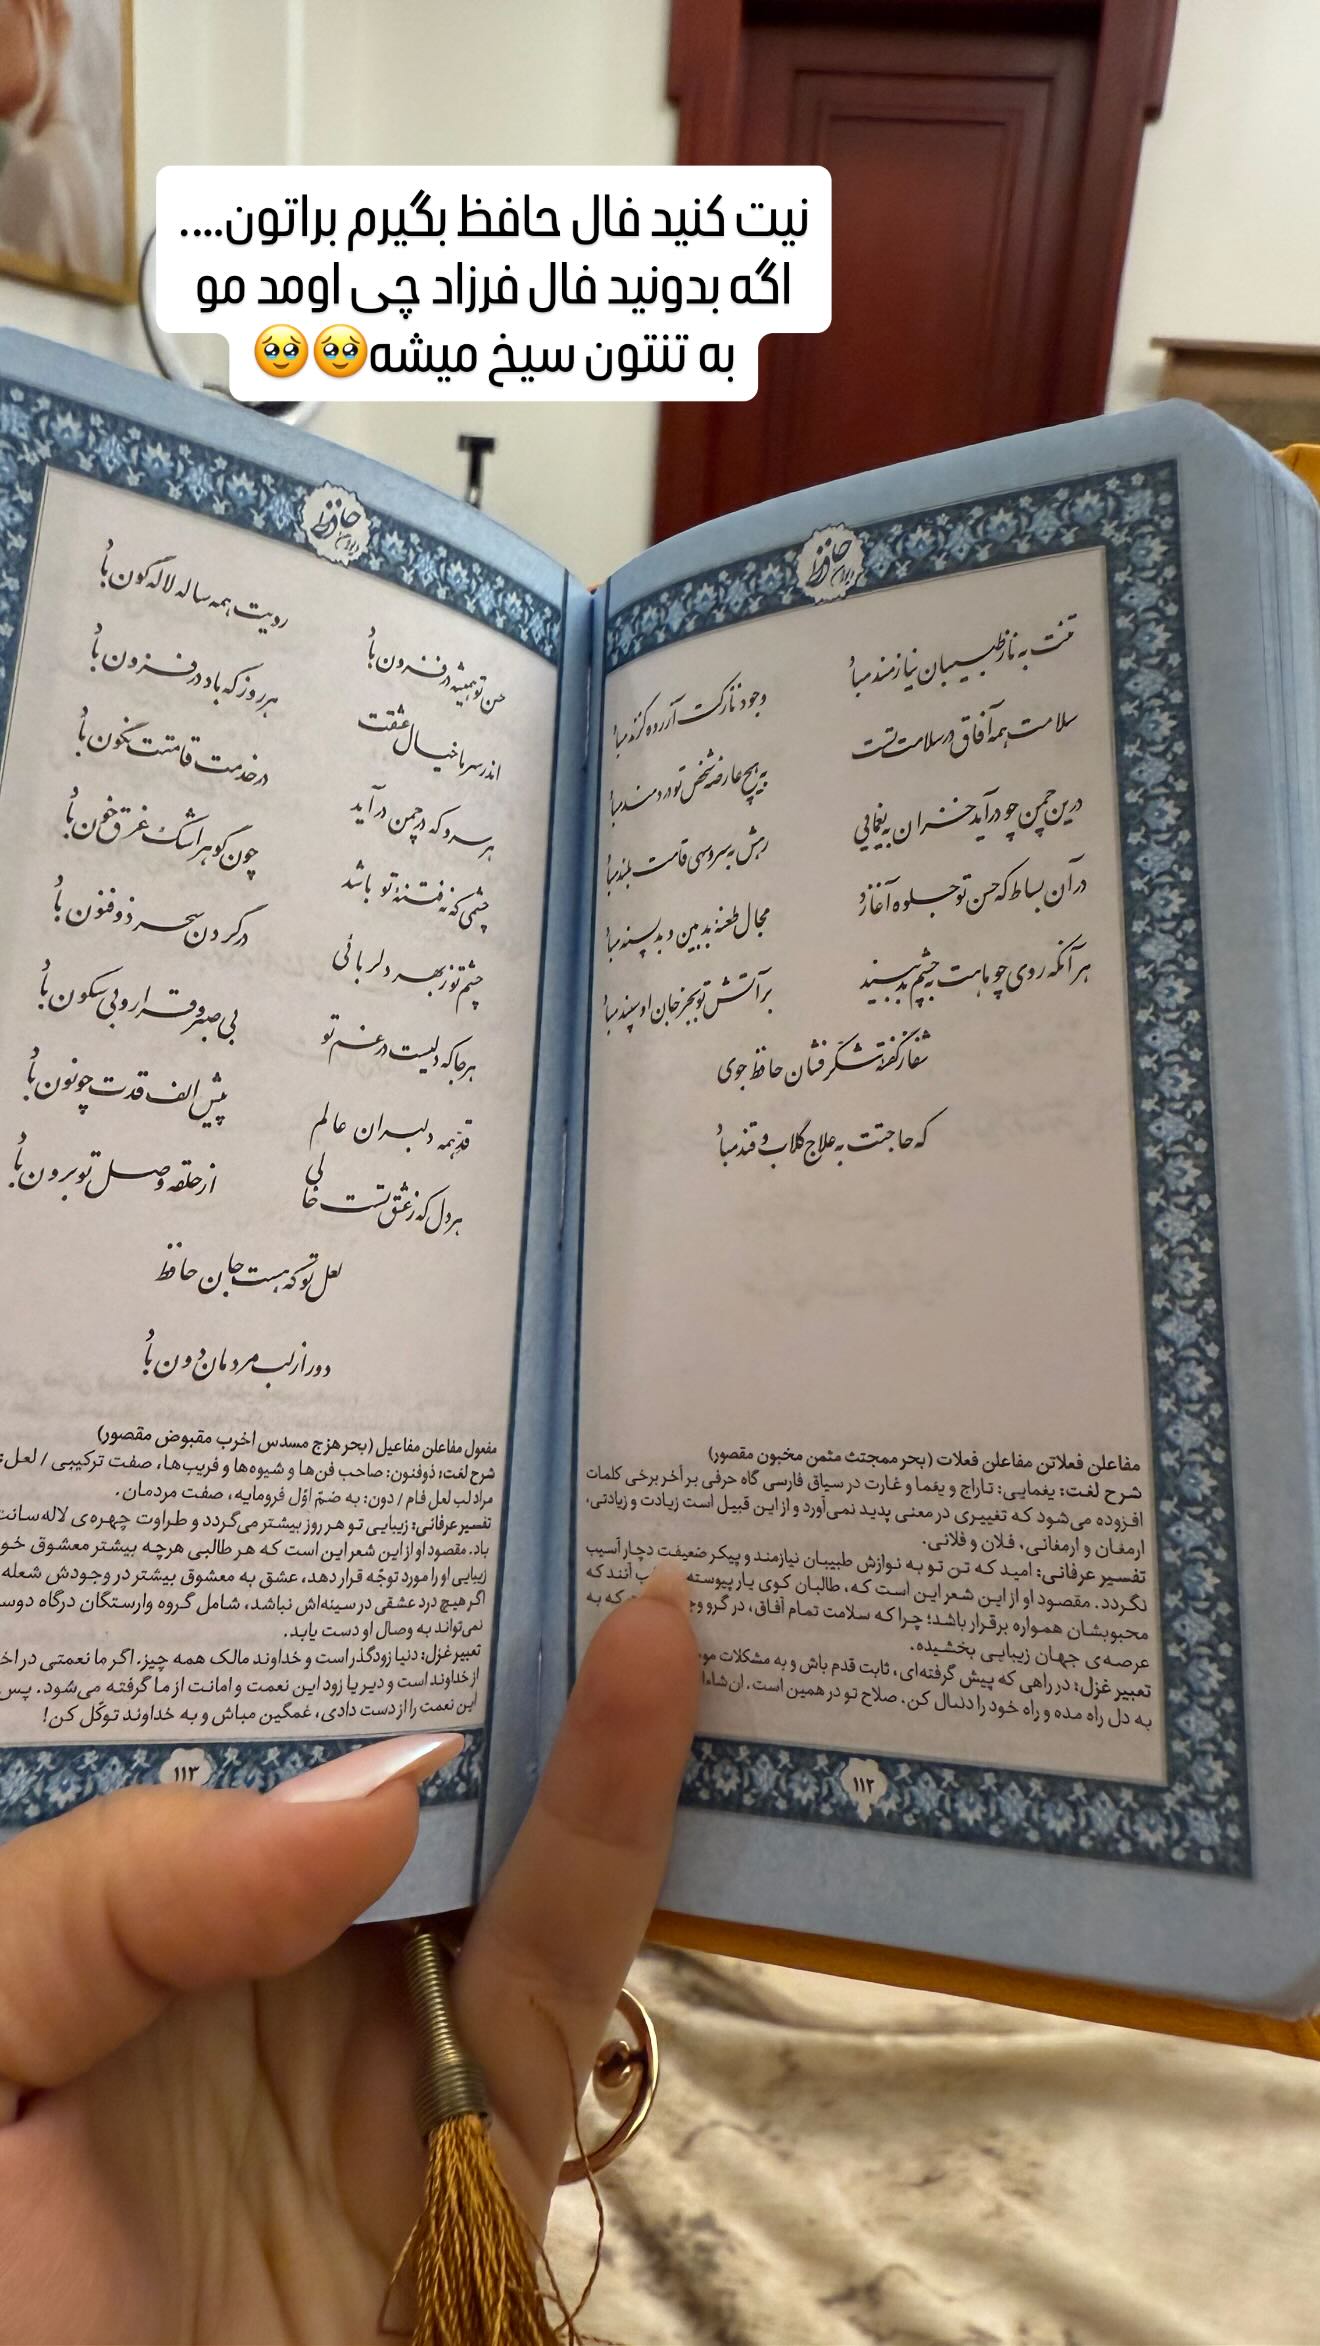 نیت کنید فال حافظ بگیرم براتون....
اگه بدونید فال فرزاد چی اومد مو
به تنتون سیخ میشه🥹🥹
دیوان حافظ
تنت به ناز طبیبان نیازمند مباد
وجود نازکت آزرده گزند مباد
سلامت همه آفاق در سلامت تست
به هیچ عارضه شخص تو دردمند مباد
درین چمن چو درآید خزان به یغمایی
رهش به سرو سهی قامت بلند مباد
در آن بساط که حسن تو جلوه آغازد
مجال طعنهٔ بدبین و بدپسند مباد
هر آنکه روی چو ماهت به چشم بد بیند
بر آتش تو بجز جان او سپند مباد
شفا ز گفته شکرفشان حافظ جوی
که حاجتت به علاج گلاب و قند مباد
مفاعلن فعلاتن مفاعلن فعلات (بحر ممجتث مثمن مخبون مقصور)
شرح لغت: یغمایی: تاراج و یغما و غارت در سیاق فارسی گاه حرفی بر آخر برخی کلمات
افزوده می‌شود که تغییری در معنی پدید نمی‌آورد و از این قبیل است زیادت و زیادتی،
ارمغان و ارمغانی، فلان و فلانی.
تفسیر عرفانی: امید که تن تو به نوازش طبیبان نیازمند و پیکر ضعیفت دچار آسیب
نگردد. مقصود او از این شعر این است که، طالبان کوی یار پیوسته آنند که
محبوبشان همواره برقرار باشد؛ چرا که سلامت تمام آفاق، در گرو که به
عرصه‌ی جهان زیبایی بخشیده.
تعبیر غزل: در راهی که پیش گرفته‌ای، ثابت قدم باش و به مشکلات
به دل راه مده و راه خود را دنبال کن. صلاح تو در همین است.
۱۱۲
دیوان حافظ
حسن تو همیشه در فزون باد
رویت همه ساله لاله گون باد
اندر سر ما خیال عشقت
هر روز که باد در فزون باد
هر سرو که در چمن در آید
در خدمت قامتت نگون باد
چشمی که نه فتنهٔ تو باشد
چون گوهر اشک غرق خون باد
چشم تو ز بهر دلربائی
در کردن سحر ذوفنون باد
هر جا که دلیست در غم تو
بی صبر و قرار و بی سکون باد
قد همه دلبران عالم
پیش الف قدت چو نون باد
هر دل که ز عشق تست خالی
از حلقه وصل تو برون باد
لعل تو که هست جان حافظ
دور از لب مردمان دون باد
مفعول مفاعلن مفاعیل (بحر هزج مسدس اخرب مقبوض مقصور)
شرح لغت: ذوفنون: صاحب فن‌ها و شیوه‌ها و فریب‌ها، صفت ترکیبی / لعل:
مراد لب لعل فام / دون: به ضمّ اوّل فرومایه، صفت مردمان.
تفسیر عرفانی: زیبایی تو هر روز بیشتر می‌گردد و طراوت چهره‌ی لاله‌سانت
باد. مقصود او از این شعر این است که هر طالبی هرچه بیشتر معشوق
زیبایی او را مورد توجّه قرار دهد، عشق به معشوق بیشتر در وجودش شعله
اگر هیچ درد عشقی در سینه‌اش نباشد، شامل گروه وارستگان درگاه
نمی‌تواند به وصال او دست یابد.
تعبیر غزل: دنیا زودگذر است و خداوند مالک همه چیز. اگر ما نعمتی در
از خداوند است و دیر یا زود این نعمت و امانت از ما گرفته می‌شود. پس
این نعمت را از دست دادی، غمگین مباش و به خداوند توکّل کن!
۱۱۳